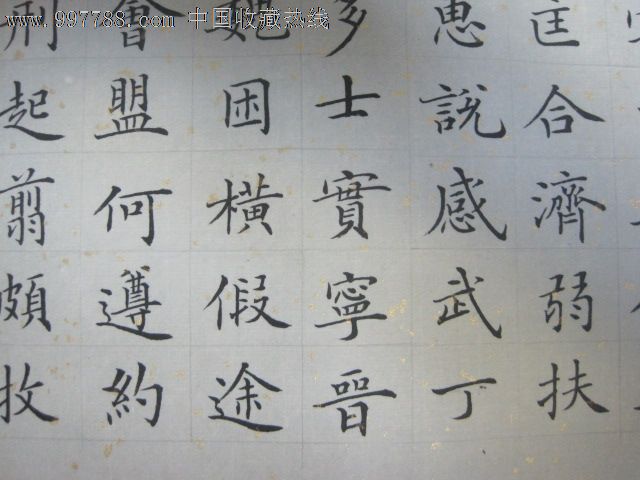 www.997788.com 中国收藏热线
匡合濟弱扶
惠說感武丁
多士實寧晉
魏困橫假途
會盟何遵約
刑起翦頗牧